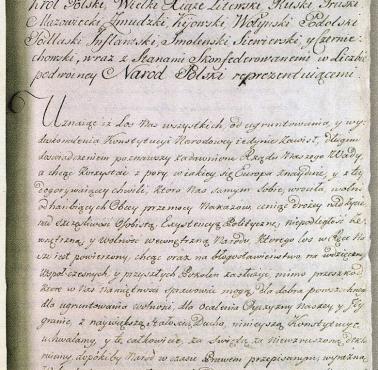 Król Polski, Wielki Xiąże Litewski, Ruski, Pruski
Mazowiecki, Żmudzki, Kijowski, Wołyński, Podolski
Podlaski, Inflantski, Smoleński, Siewierski, y Czernie-
chowski, wraz z Stanami Skonfederowanemi w Liczbie
podwoiney Naród Polski reprezentuiącemi.
Uznaiąc, iż los Nas wszystkich, od ugruntowania, y wy-
doskonalenia Konstytucyi Narodowey iedynie zawisł, długim
doświadczeniem poznawszy zadawnione Rządu Naszego Wady,
a chcąc korzystać z pory, w iakiey się Europa znayduie, y z tey
dogorywaiącey chwili, która Nas samym Sobie wróciła, wolni
od hańbiących Obcey przemocy Nakazów, ceniąc drożey nad życie,
nad szczęśliwość Osobistą, Exystencyą Polityczną, niepodległość ze-
wnętrzną, y wolność wewnętrzną Narodu, którego los w Ręce Na-
sze iest powierzony, chcąc oraz na błogosławieństwo, na wdzięczność
Współczesnych, y przyszłych Pokoleń zasłużyć, mimo przeszkód,
które w Nas namiętności sprawować mogą, dla dobra powszechnego,
dla ugruntowania wolności, dla Ocalenia Oyczyzny Naszey, y Iey
granic, z naywiększą stałością Ducha, ninieyszą Konstytucyę
uchwalamy, y tę całkowicie za Świętą, za niewzruszoną dekla-
ruiemy, dopókiby Naród w czasie Prawem przepisanym, wyraźną